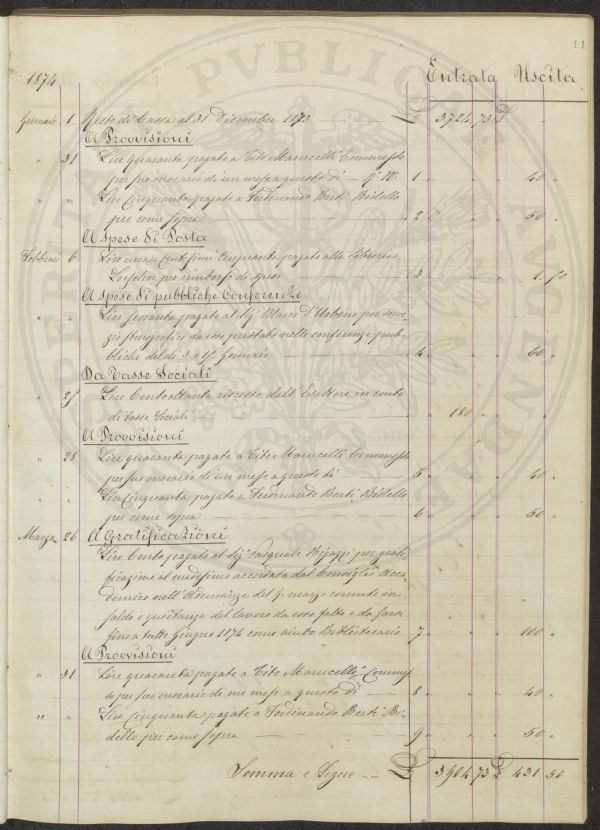 11
Entrata Uscita
1874
Gennaio 1 Resto di Cassa al 31. Dicembre 1873 £ 3724 73 £
A Provvisioni
" 31 Lire quaranta pagate a Tito Marucelli Commesso
per suo onorario di un mese a questo dì 1 " 40 "
" " Lire Cinquanta pagate a Ferdinando Berti Bidello
per come sopra 2 " 50 "
A Spese di Posta
Febbraio 6 Lire una e Centesimi Cinquanta pagate alla Libreria
Loescher per rimborso di spese 3 " 1 50
A Spese di pubbliche Conferenze
" " Lire sessanta pagate al Sig. Marco D'Urbino per servi-
zio stenografico da esso prestato nelle conferenze pub-
bliche dei dì Gennaio 4 " 60 "
Da Tasse Sociali
" 25 Lire Centottanta riscosse dall'Esattore in conto
di tasse Sociali " 180 " "
A Provvisioni
" 28 Lire quaranta pagate a Tito Marucelli Commesso
per suo onorario di un mese a questo dì 5 " 40 "
Lire Cinquanta pagate a Ferdinando Berti Bidello
per come sopra 6 " 50 "
Marzo 26 A Gratificazioni
Lire Cento pagate al Sig. Pasquale Bigazzi per grati-
ficazione al medesimo accordata dal Consiglio Acca-
demico nell'Adunanza del marzo corrente in
saldo e quietanza del lavoro da esso fatto e da farsi
fino a tutto Giugno 1874 come aiuto Bibliotecario 7 " 100 "
A Provvisioni
" 31 Lire quaranta pagate a Tito Marucelli Commes-
so per suo onorario di un mese a questo dì 8 " 40 "
" " Lire Cinquanta pagate a Ferdinando Berti Bi-
dello per come sopra 9 " 50 "
Somma e Segue £ 3904 73 £ 431 50